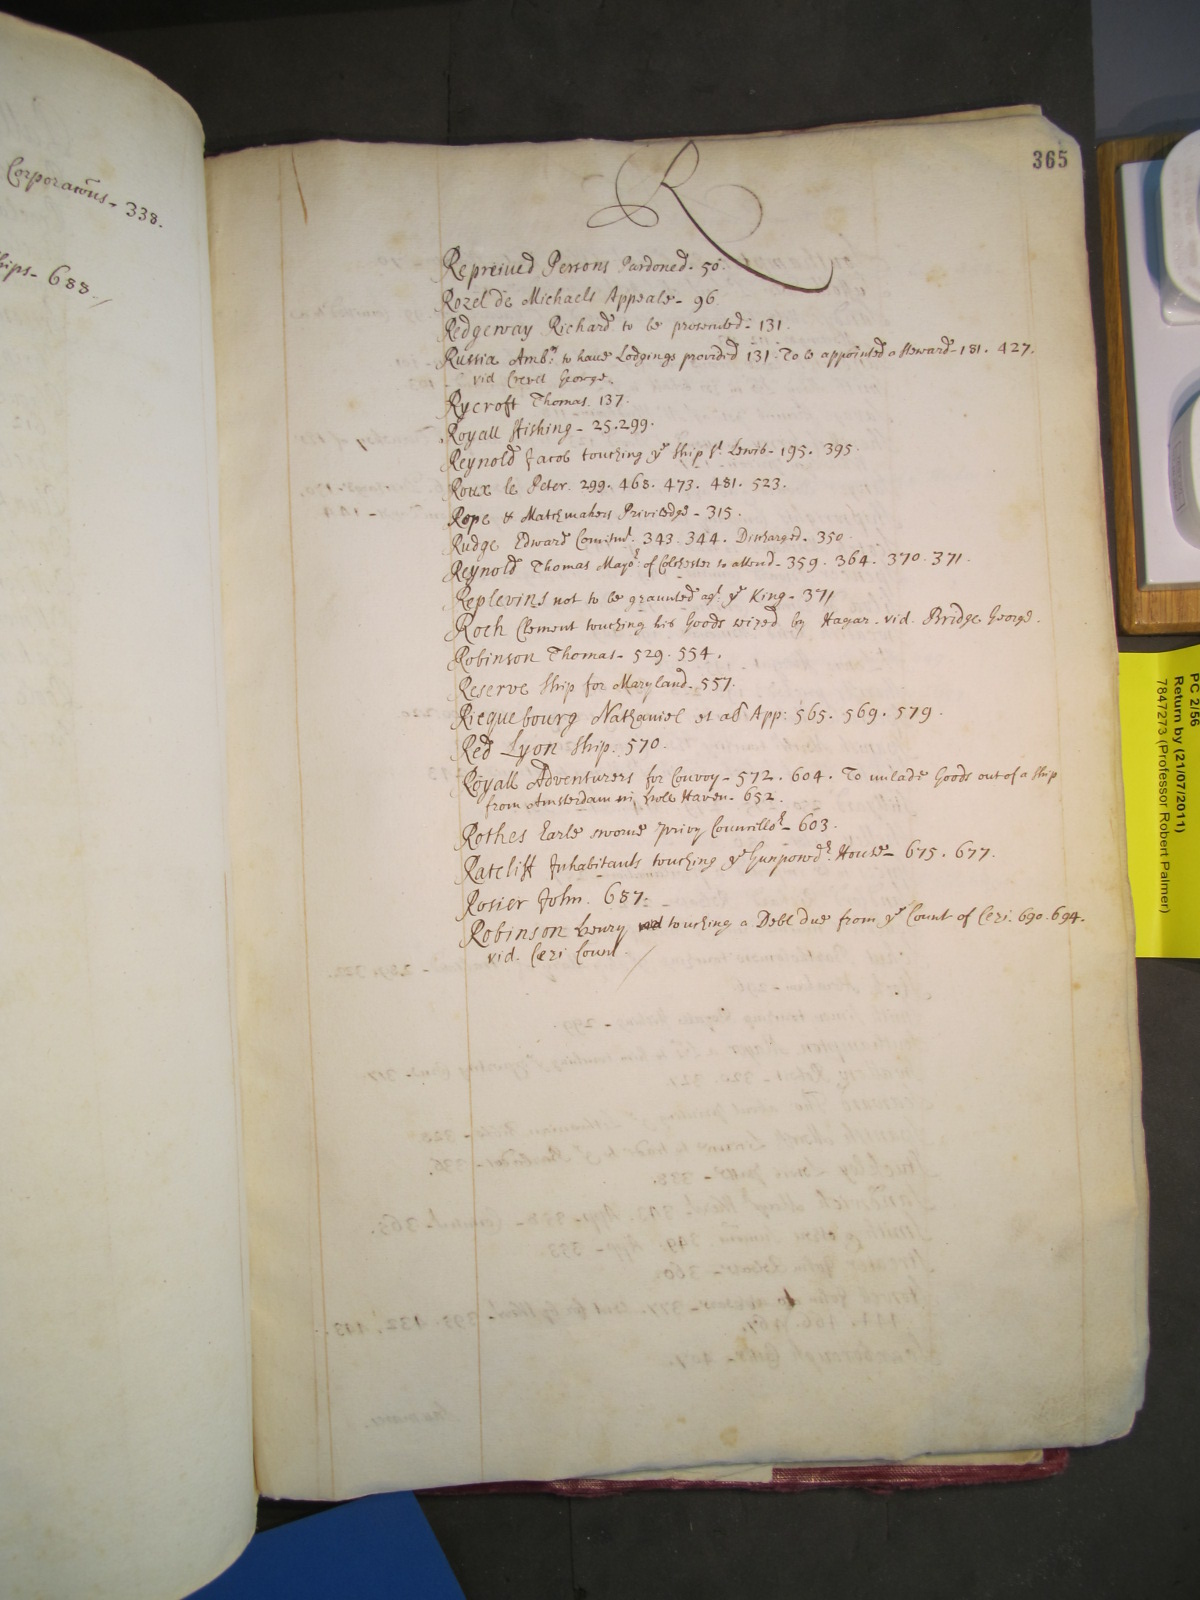 Corporac̃ons - 338.
ships - 688.
365
R
Repreiued Persons Pardoned. 56.
Rozel de Michaels Appeale - 96.
Redgeway Richard to be prosecuted - 131.
Russia Ambr. to haue Lodgings provided 131. To be appointed a steward - 181. 427.
vid Crevet George.
Rycroft Thomas. 137.
Royall ffishing - 25.299.
Reynold Jacob touching ye ship St. Lewis - 195. 395.
Roux le Peter. 299. 468. 473. 481. 523.
Rope & Matchmakers Priviledge - 315.
Rudge Edward Com̃itmt. 343. 344. Discharged. 350.
Reynold Thomas Mayor. of Colchester to attend - 359. 364. 370. 371.
Replevins not to be graunted agt. ye King - 371
Roch Clement touching his Goods seized by Hagar. vid. Bridge George.
Robinson Thomas - 529. 554.
Reserve ship for Maryland. 557.
Ricquebourg Nathaniel et ad App: 565. 569. 579.
Red Lyon ship. 570.
Royall Adventurers for Convoy - 572. 604. To unlade Goods out of a ship
from Amsterdam in Hole Haven - 652.
Rothes Earle sworne privy Councillor - 603.
Ratcliff Inhabitants touching ye Gunpowdr. House - 675. 677.
Rosier John. 687.
Robinson Henry touching a Debt due from ye Count of Ceri. 690. 694.
vid. Cæri Count.
PC 2/56
Return by (21/07/2011)
7847273 (Professor Robert Palmer)